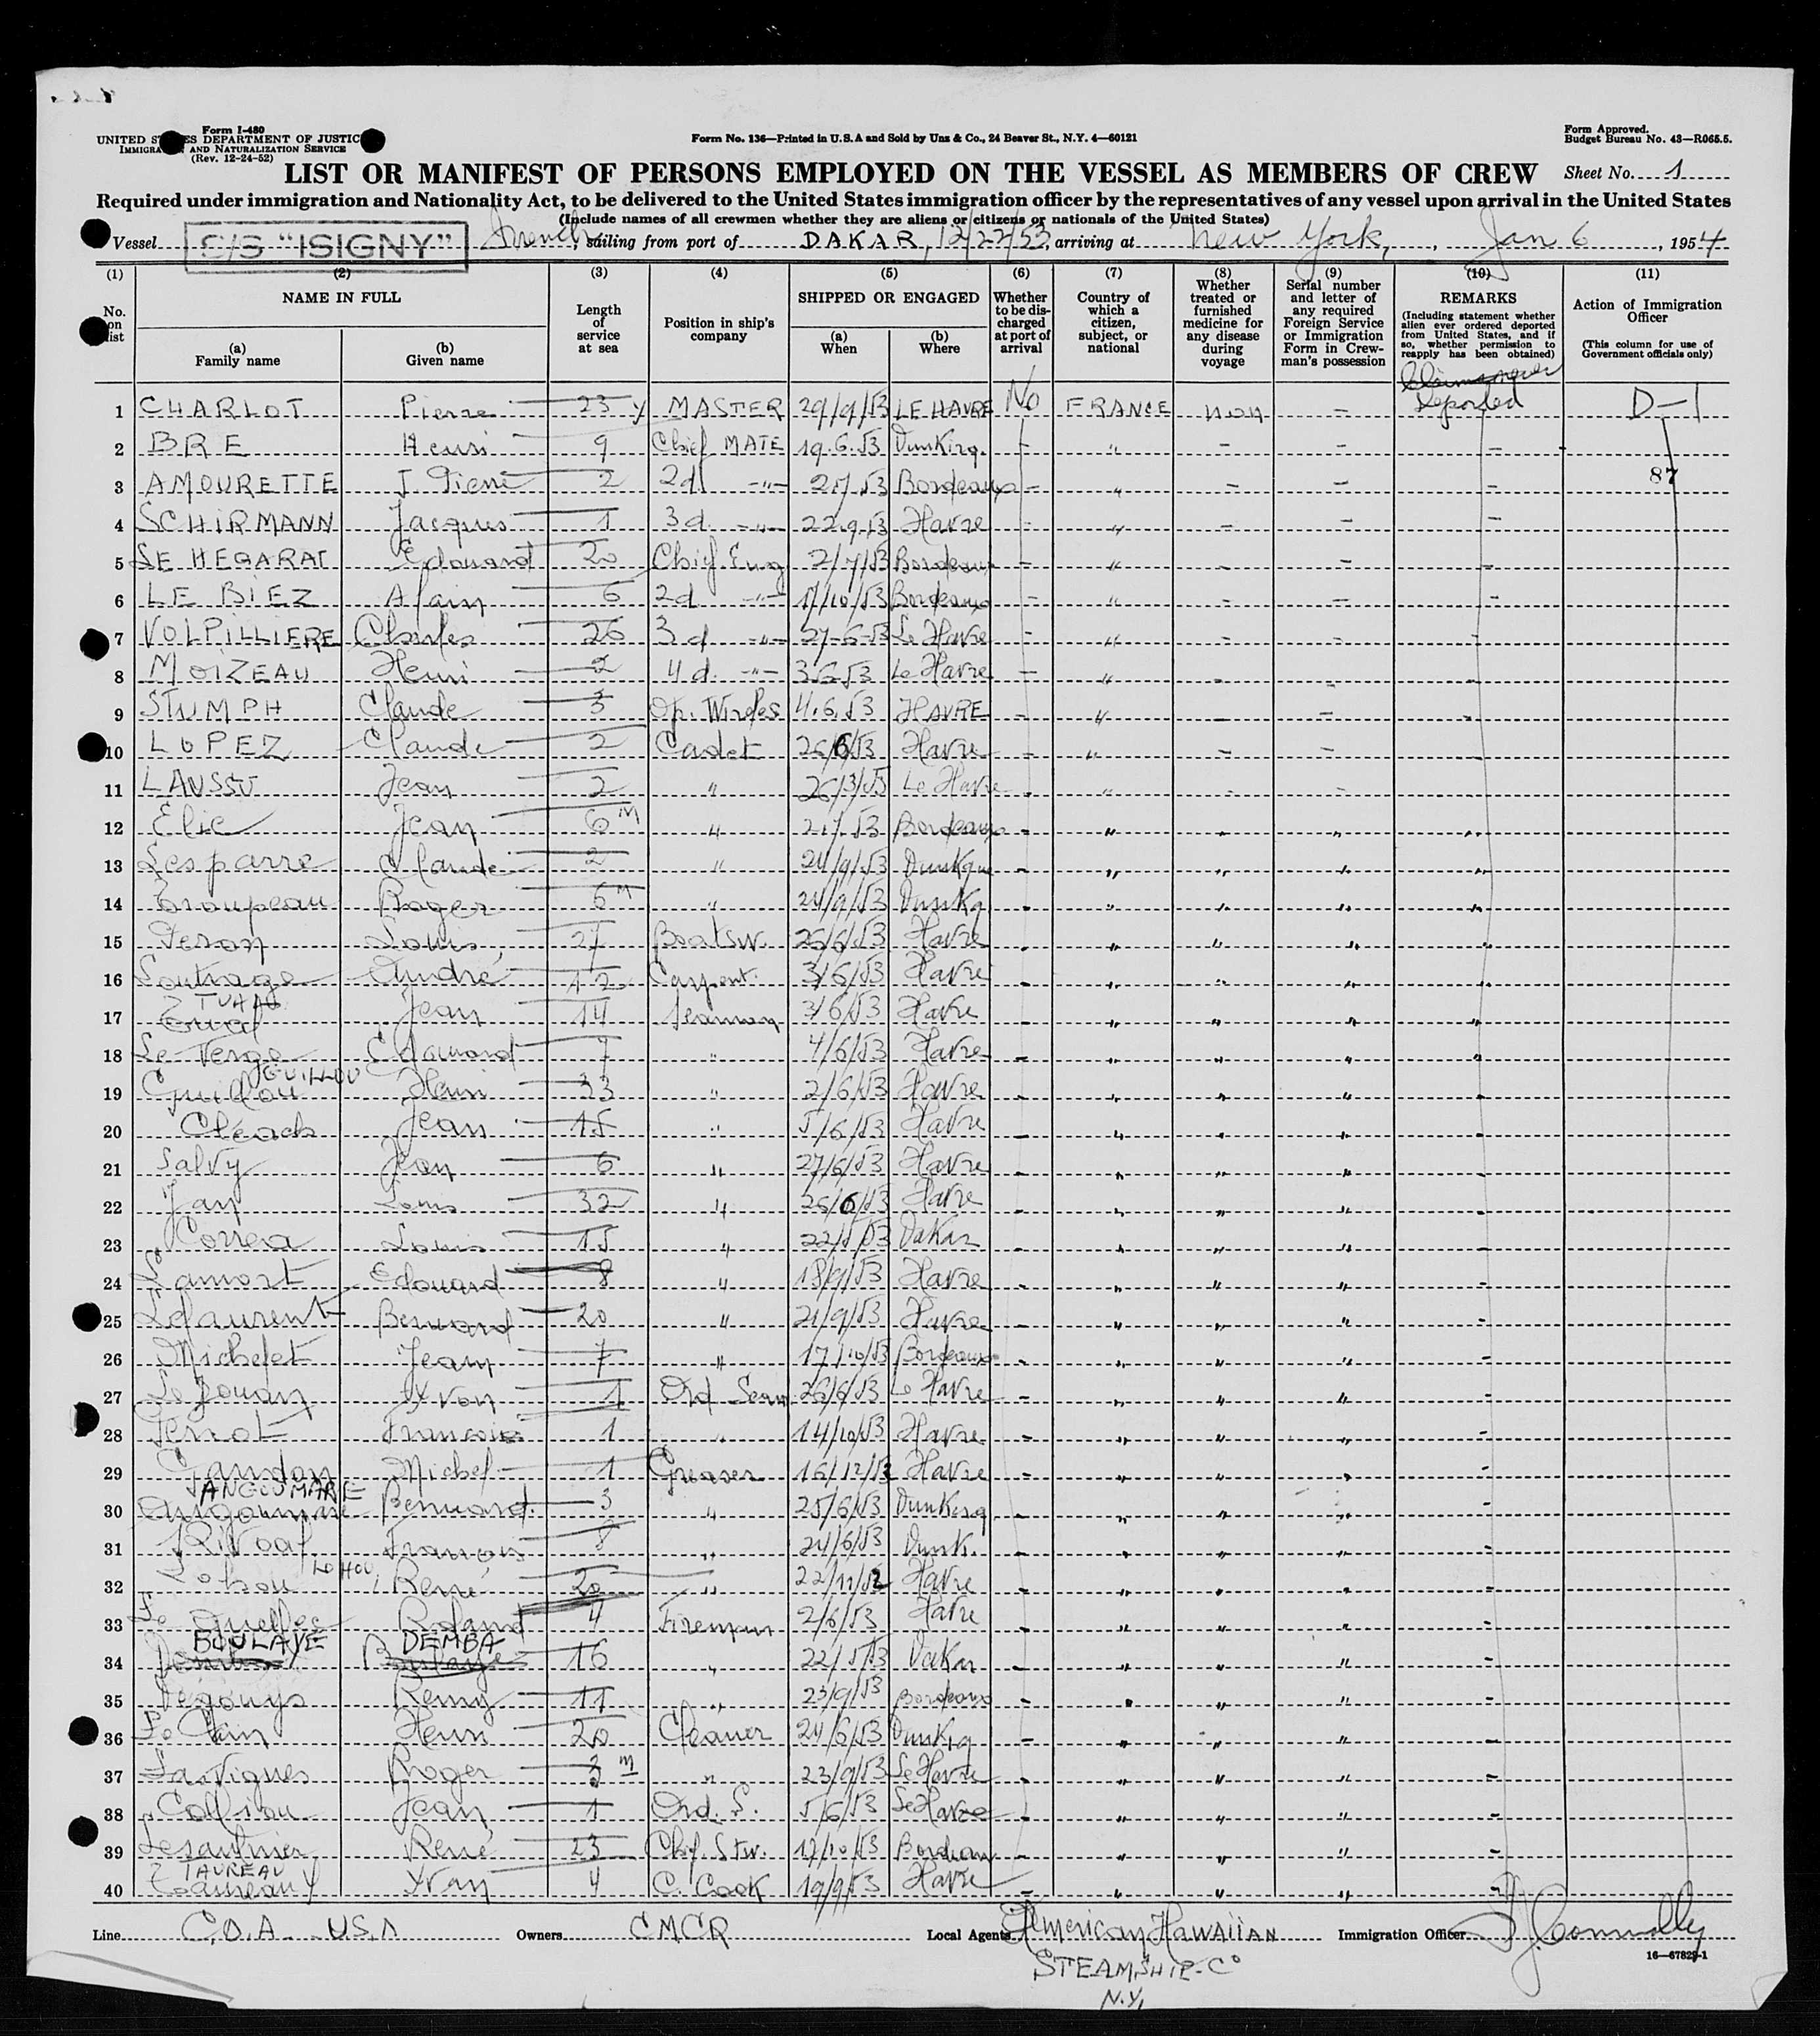 Form I-480
UNITED STATES DEPARTMENT OF JUSTICE
IMMIGRATION AND NATURALIZATION SERVICE
(Rev. 12-24-52)
Form No. 136—Printed in U.S.A and Sold by Unz & Co., 24 Beaver St., N.Y. 4—60121
Form Approved.
Budget Bureau No. 43—R065.5.
LIST OR MANIFEST OF PERSONS EMPLOYED ON THE VESSEL AS MEMBERS OF CREW Sheet No. 1
Required under immigration and Nationality Act, to be delivered to the United States immigration officer by the representatives of any vessel upon arrival in the United States
(Include names of all crewmen whether they are aliens or citizens or nationals of the United States)
Vessel S/S "ISIGNY" French, sailing from port of DAKAR, 12/22/53, arriving at New York, Jan 6, 1954
(1) (2) (3) (4) (5) (6) (7) (8) (9) (10) (11)
No. on list
NAME IN FULL
(a) Family name
(b) Given name
Length of service at sea
Position in ship's company
SHIPPED OR ENGAGED
(a) When
(b) Where
Whether to be discharged at port of arrival
Country of which a citizen, subject, or national
Whether treated or furnished medicine for any disease during voyage
Serial number and letter of any required Foreign Service or Immigration Form in Crewman's possession
REMARKS
(Including statement whether alien ever ordered deported from United States, and if so, whether permission to reapply has been obtained)
Action of Immigration Officer
(This column for use of Government officials only)
Deported
1 CHARLOT Pierre 23 y MASTER 29/9/53 LE HAVRE No FRANCE non — D-1
2 BRE Henri 9 Chief MATE 19.6.53 Dunkirq. - " - - -
3 AMOURETTE J. Pierre 2 2d -"- 2.7.53 Bordeaux - " - - - 87
4 SCHIRMANN Jacques 1 3d -"- 22.9.53 Havre - " - - -
5 LE HEGARAT Edouard 20 Chief. Eng 2/7/53 Bordeaux - " - - -
6 LE BIEZ Alain 6 2d -"- 17/10/53 Bordeaux - " - - -
7 VOLPILLIERE Charles 26 3d -"- 27-6-53 Le Havre - " - - -
8 MOIZEAU Henri 2 4d. -"- 3.6.53 Le Havre - " - - -
9 STUMPH Claude 3 Op. Wirles 4.6.53 HAVRE - " - - -
10 LOPEZ Claude 2 Cadet 26/6/53 Havre - " - - -
11 LAUSSU Jean 2 " 26/3/53 Le Havre - " - - -
12 Elie Jean 6 m " 2.7.53 Bordeaux - " " " "
13 Lesparre Claude 2 " 24/9/53 Dunkque - " " " "
14 Troupeau Roger 6 m " 24/9/53 Dunkq. - " " " "
15 Peron Louis 27 Boatsw. 26/6/53 Havre - " " " "
16 Loutrage André 12 Carpent. 3/6/53 Havre - " " " "
17 TUAL Jean 14 seaman 3/6/53 Havre - " " " "
18 Le Verge Edmond 7 " 4/6/53 Havre - " " " "
19 Guillou GUILLOU Henri 33 " 2/6/53 Havre - " " " -
20 Cléach Jean 15 " 5/6/53 Havre - " " " -
21 Salvy Jean 6 " 27/6/53 Havre - " " " -
22 Jan Louis 32 " 26/6/53 Havre - " " " -
23 Correa Louis 15 " 22/5/53 Dakar - " " " -
24 Lamort Edouard 8 " 18/9/53 Havre - " " " -
25 Lelaurent Bernard 20 " 21/9/53 Havre - " " " -
26 Michelet Jean 7 " 17/10/53 Bordeaux - " " " -
27 Le Jouan Yvon 1 Ord Seam. 26/6/53 Le Havre - " " " -
28 Perrot Francois 1 " 14/10/53 Havre - " " " -
29 Gandon Michel 1 Greaser 16/12/52 Havre - " " " -
30 ANGOUMARE Bernard 3 " 25/6/53 Dunkerq - " " " -
31 Rivoal Francois 8 " 24/6/53 Dunk. - " " " -
32 Lohou LOHOU René 20 " 22/11/52 Havre - " " " -
33 Le Quellec Roland 4 Fireman 2/6/53 Havre - " " " -
34 BOULAYE DEMBA 16 " 22/5/53 Dakar - " " " -
35 Remy 11 " 23/9/53 Bordeaux - " " " -
36 Le Clain Henri 20 Cleaner 24/6/53 Dunkirq - " " " -
37 Lartigues Roger 3 m " 23/9/53 Le Havre - " " " -
38 Colliou Jean 1 Ord. S. 5/6/53 Le Havre - " " " -
39 Lesaulnier René 23 Chf. Stw. 17/10/53 Bordeaux - " " " -
40 TAUREAU Yvan 4 C. Cook 19/9/53 Havre - " " " -
Line C.D.A. U.S.A Owners CMCR Local Agents American Hawaiian Immigration Officer J. Connolly
STEAMSHIP. Co
N.Y.
16—67829-1